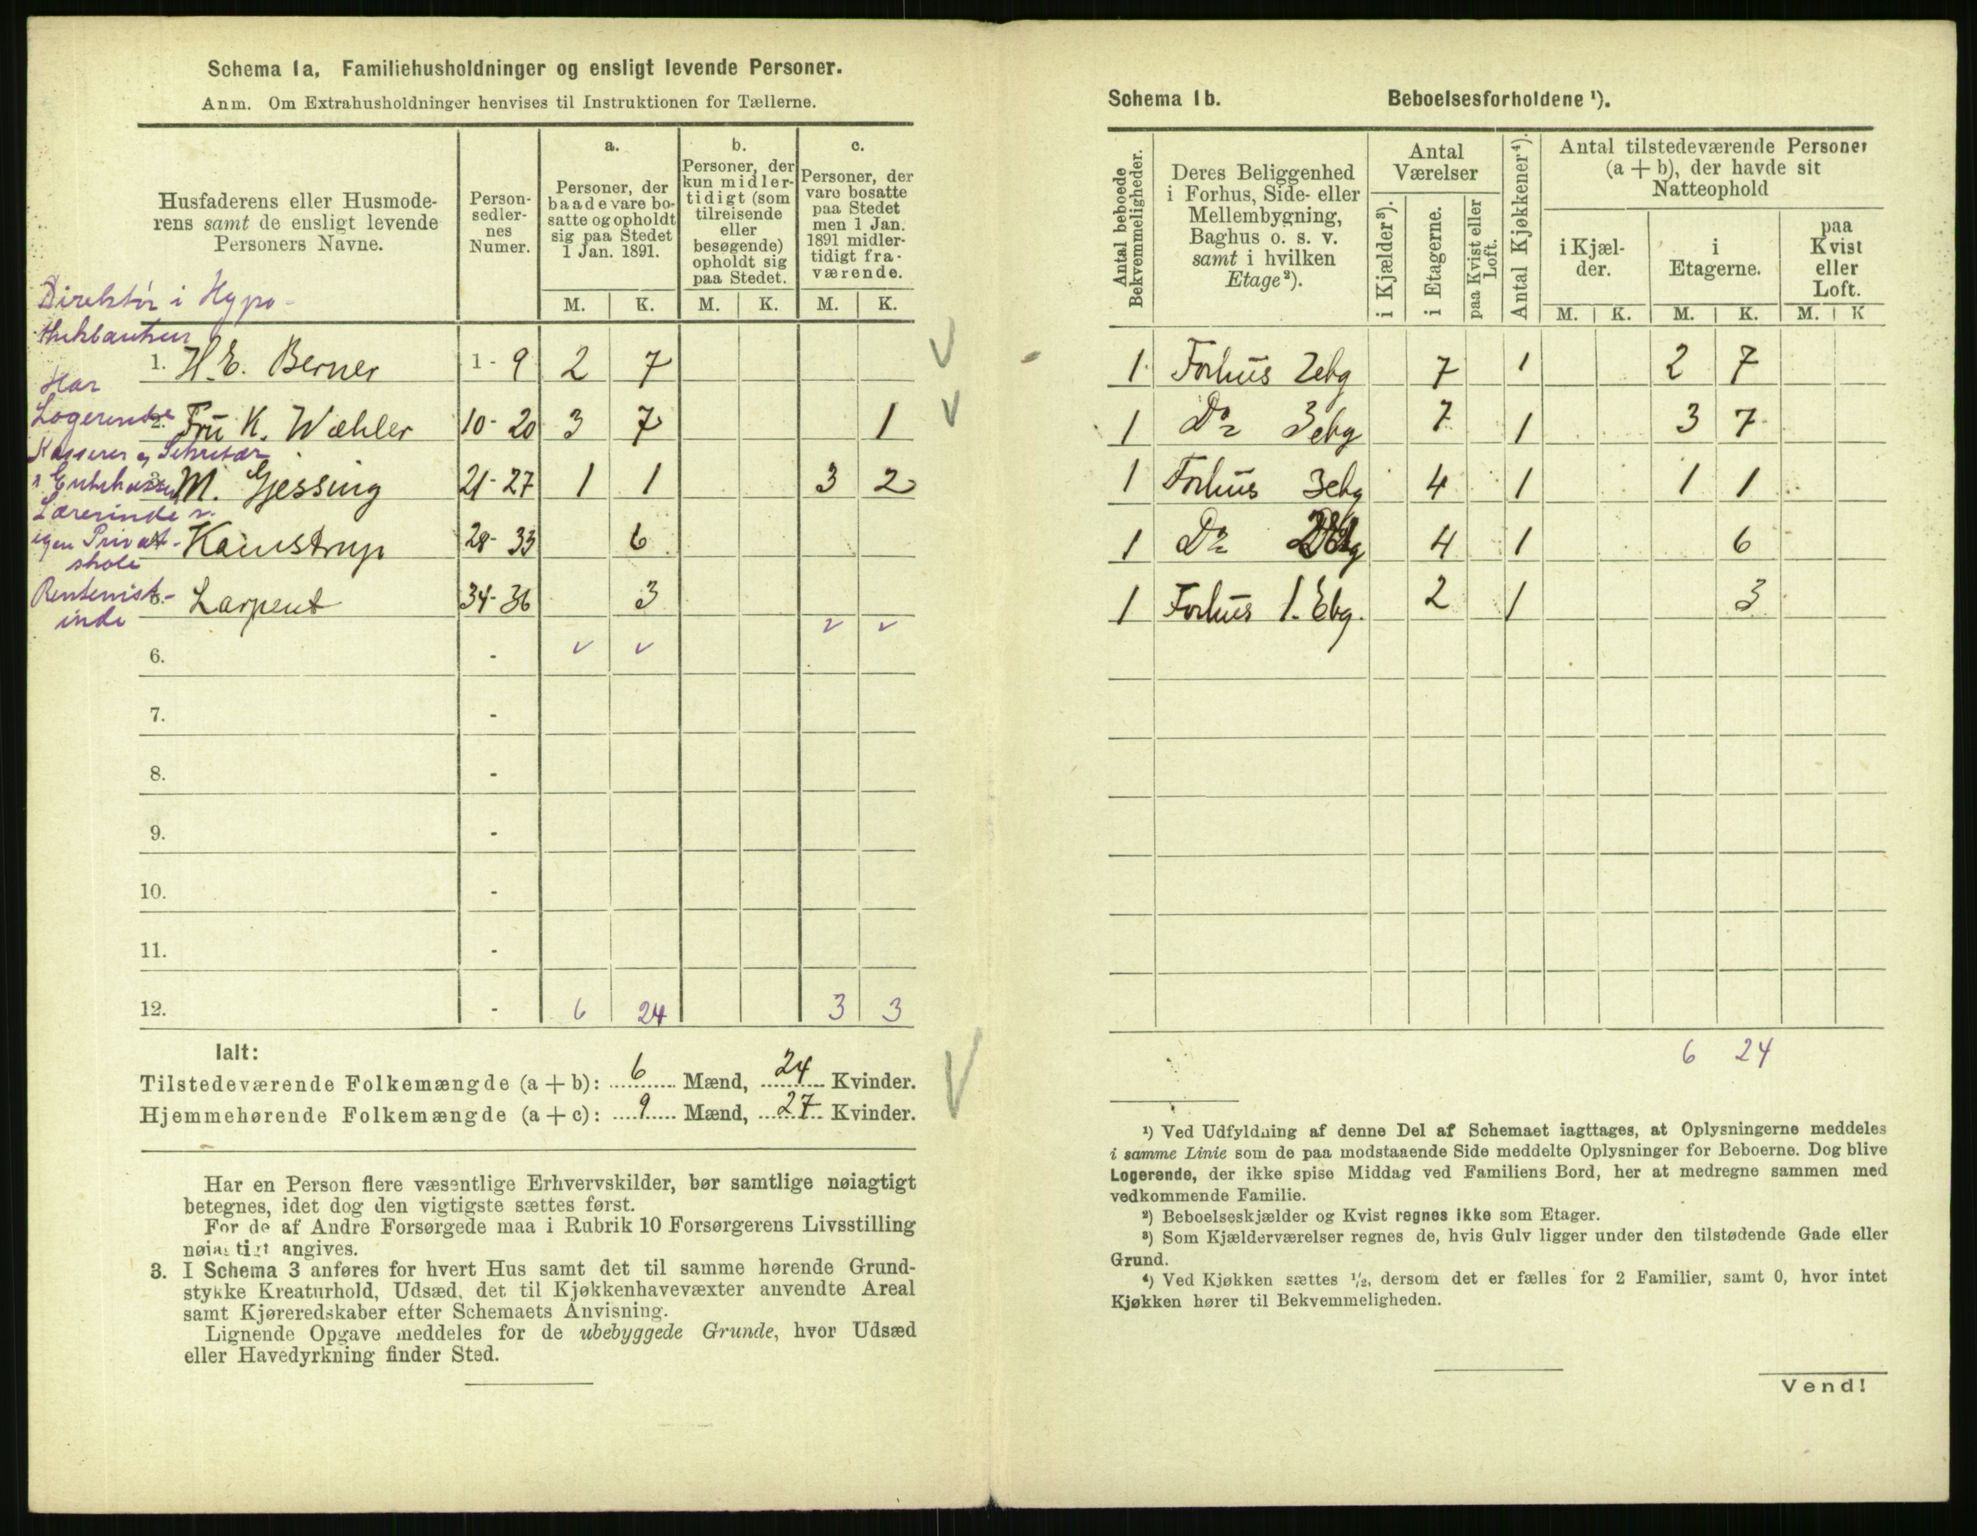 Schema 1a. Familiehusholdninger og ensligt levende Personer.
Anm. Om Extrahusholdninger henvises til Instruktionen for Tællerne.
Husfaderens eller Husmode-
rens samt de ensligt levende
Personers Navne.
Person-
sedler-
nes
Numer.
a.
Personer, der
baade vare bo-
satte og opholdt
sig paa Stedet
1 Jan. 1891.
b.
Personer, der
kun midler-
tidigt (som
tilreisende
eller
besøgende)
opholdt sig
paa Stedet.
c.
Personer, der
vare bosatte
paa Stedet
men 1 Jan.
1891 midler-
tidigt fra-
værende.
M. K. M. K. M. K.
Direktör i Hypo-
thekbanken
1. H. E. Berner 1 - 9 2 7
Har
Logerende
2. Fru K. Wæhler 10 - 20 3 7 1
Kasserer og Sekretær
M. Gjessing 21 - 27 1 1 3 2
Lærerinde v.
egen Privat-
skole
Kamstrup 28 - 33 6
Rentenist-
inde
5. Larpent 34 - 36 3
6. -
7. -
8. -
9. -
10. -
11. -
12. - 6 24 3 3
Ialt:
Tilstedeværende Folkemængde (a + b): 6 Mænd, 24 Kvinder.
Hjemmehørende Folkemængde (a + c): 9 Mænd, 27 Kvinder.
Har en Person flere væsentlige Erhvervskilder, bør samtlige nøiagtigt
betegnes, idet dog den vigtigste sættes først.
For de af Andre Forsørgede maa i Rubrik 10 Forsørgerens Livsstilling
nøiagtigt angives.
3. I Schema 3 anføres for hvert Hus samt det til samme hørende Grund-
stykke Kreaturhold, Udsæd, det til Kjøkkenhavevæxter anvendte Areal
samt Kjøreredskaber efter Schemaets Anvisning.
Lignende Opgave meddeles for de ubebyggede Grunde, hvor Udsæd
eller Havedyrkning finder Sted.
Schema 1b. Beboelsesforholdene ¹).
Antal beboede
Bekvemmeligheder.
Deres Beliggenhed
i Forhus, Side- eller
Mellembygning,
Baghus o. s. v.
samt i hvilken
Etage²).
Antal
Værelser
i Kjælder³).
i Etagerne.
paa Kvist eller
Loft.
Antal Kjøkkener⁴).
Antal tilstedeværende Personer
(a + b), der havde sit
Natteophold
i Kjæl-
der.
i
Etagerne.
paa
Kvist
eller
Loft.
M. K. M. K. M. K
1 Forhus 2 etg 7 1 2 7
1 Do 3 etg 7 1 3 7
1 Forhus 3 etg 4 1 1 1
1 Do 4 1 6
1 Forhus 1. Etg. 2 1 3
6 24
¹) Ved Udfyldning af denne Del af Schemaet iagttages, at Oplysningerne meddeles
i samme Linie som de paa modstaaende Side meddelte Oplysninger for Beboerne. Dog blive
Logerende, der ikke spise Middag ved Familiens Bord, her at medregne sammen med
vedkommende Familie.
²) Beboelseskjælder og Kvist regnes ikke som Etager.
³) Som Kjælderværelser regnes de, hvis Gulv ligger under den tilstødende Gade eller
Grund.
⁴) Ved Kjøkken sættes ½, dersom det er fælles for 2 Familier, samt 0, hvor intet
Kjøkken hører til Bekvemmeligheden.
Vend!